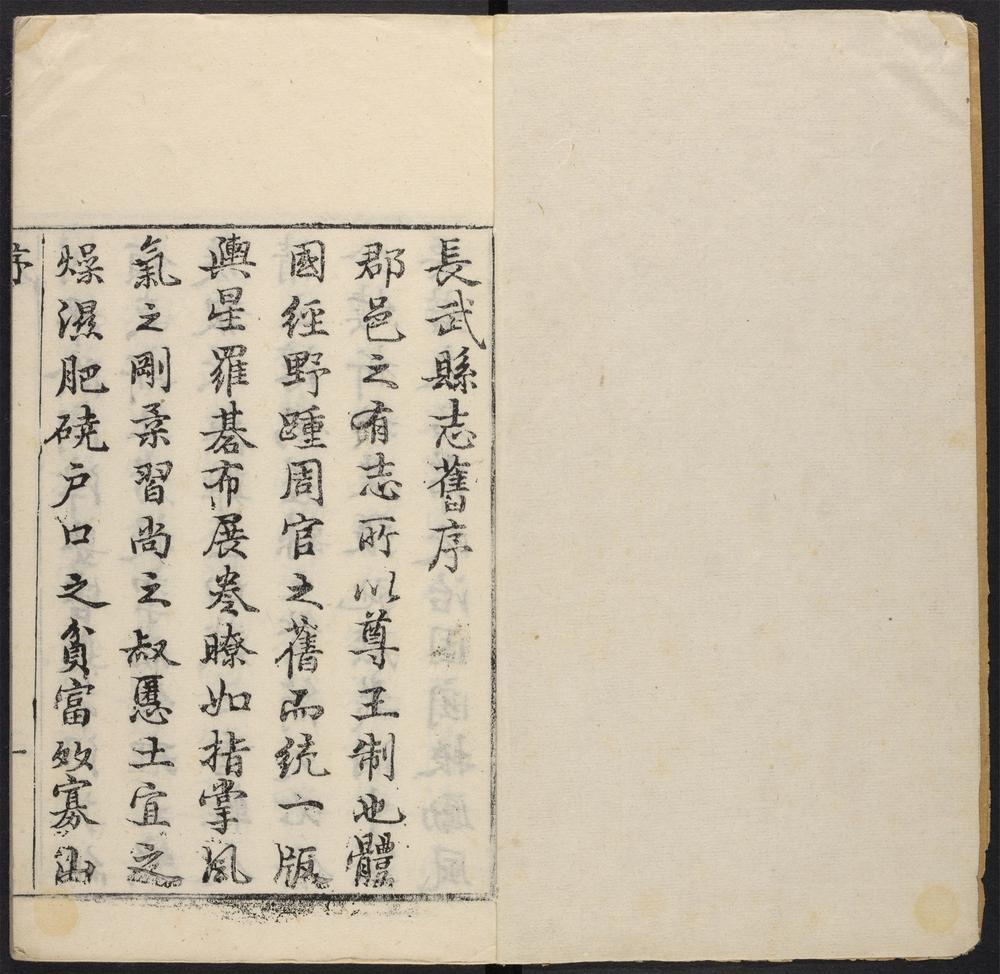 長武縣志舊序
郡邑之有志所以尊王制也體
國經野踵周官之舊而統一版
輿星羅碁布展卷瞭如指掌風
氣之剛柔習尚之淑慝土宜之
燥濕肥磽戶口之貧富
序
一